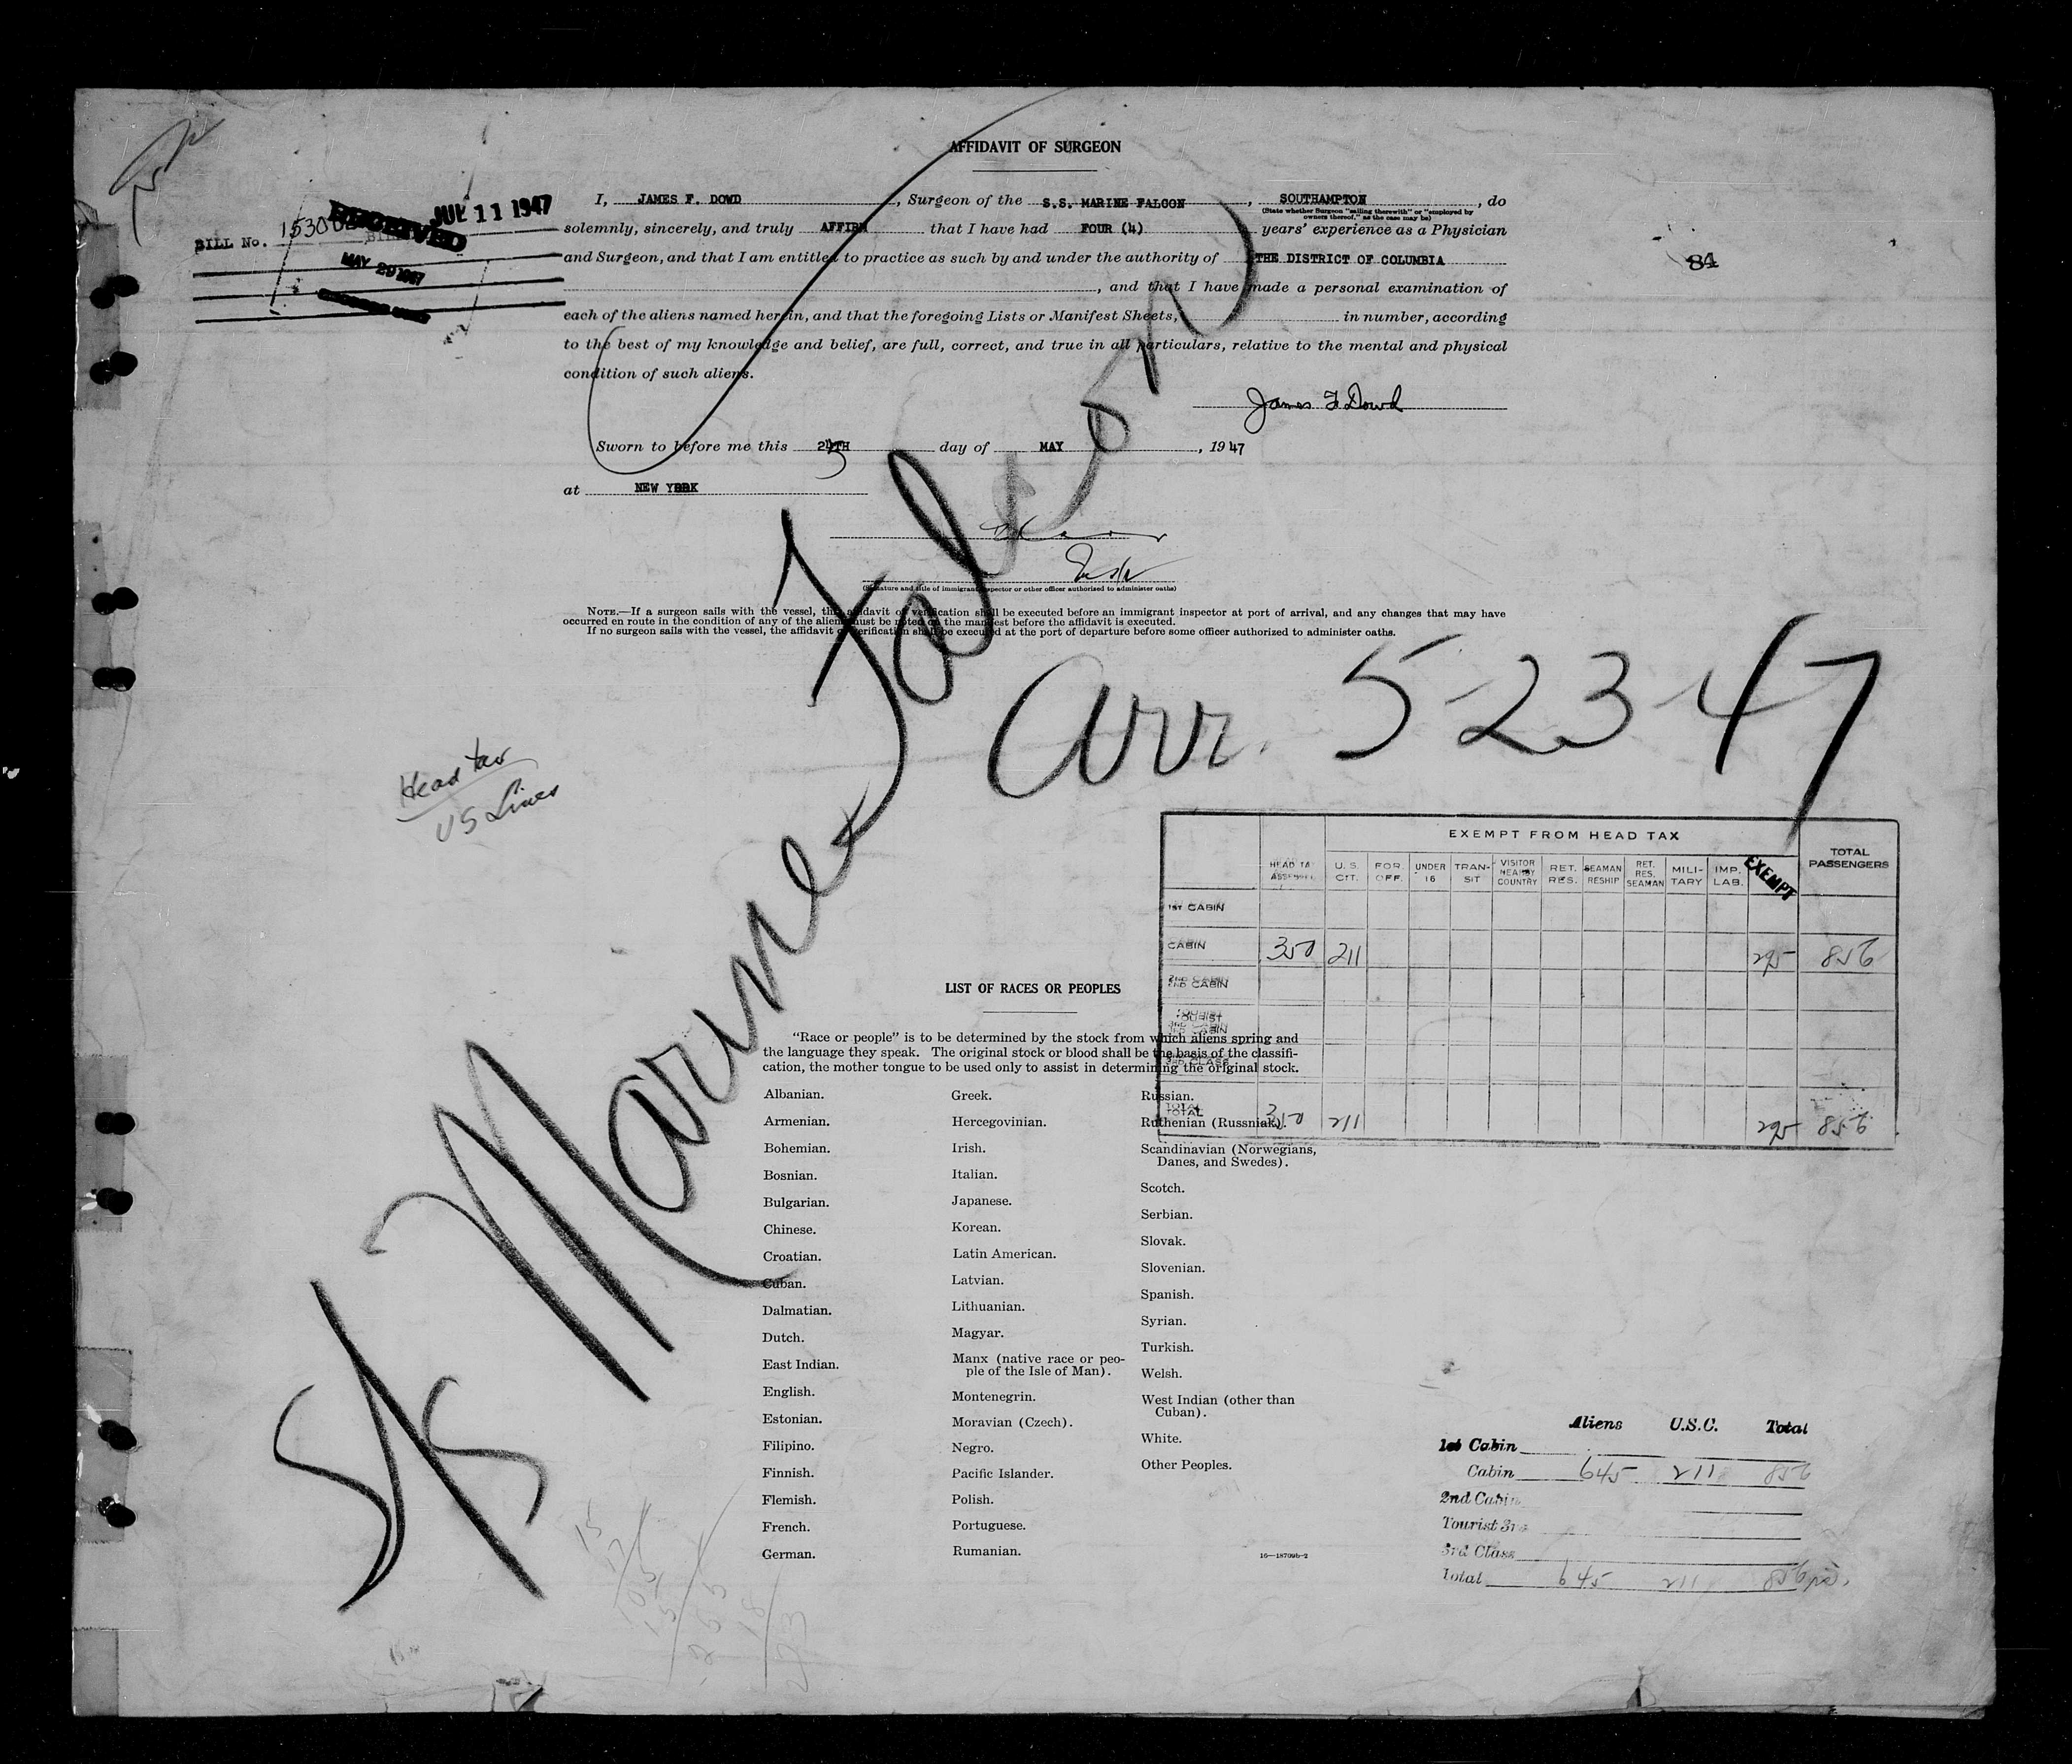 AFFIDAVIT OF SURGEON
I, JAMES F. DOWD, Surgeon of the S.S. MARINE FALCON, SOUTHAMPTON, do
(State whether Surgeon "sailing therewith" or "employed by owners thereof," as the case may be)
solemnly, sincerely, and truly AFFIRM that I have had FOUR (4) years' experience as a Physician
and Surgeon, and that I am entitled to practice as such by and under the authority of THE DISTRICT OF COLUMBIA
, and that I have made a personal examination of
each of the aliens named herein, and that the foregoing Lists or Manifest Sheets, in number, according
to the best of my knowledge and belief, are full, correct, and true in all particulars, relative to the mental and physical
condition of such aliens.
James F Dowd
Sworn to before me this 24TH day of MAY, 1947
at NEW YORK
(Signature and title of immigrant inspector or other officer authorized to administer oaths)
NOTE.—If a surgeon sails with the vessel, this affidavit or verification shall be executed before an immigrant inspector at port of arrival, and any changes that may have
occurred en route in the condition of any of the aliens must be noted on the manifest before the affidavit is executed.
If no surgeon sails with the vessel, the affidavit or verification shall be executed at the port of departure before some officer authorized to administer oaths.
BILL No.
RECEIVED
JUL 11 1947
MAY 29 1947
84
S/S Marine Falcon
Arr. 5-23-47
Head tax
US Lines
EXEMPT FROM HEAD TAX
HEAD TAX ASSESSED U.S. CIT. FOR. OFF. UNDER 16 TRANSIT VISITOR NEARBY COUNTRY RET. RES. SEAMAN RESHIP RET. RES. SEAMAN MILITARY IMP. LAB. EXEMPT TOTAL PASSENGERS
1ST CABIN
CABIN 350 211 295 856
2ND CABIN
TOURIST 3RD CABIN
3RD CLASS
TOTAL 350 211 295 856
LIST OF RACES OR PEOPLES
"Race or people" is to be determined by the stock from which aliens spring and
the language they speak. The original stock or blood shall be the basis of the classifi-
cation, the mother tongue to be used only to assist in determining the original stock.
Albanian.
Armenian.
Bohemian.
Bosnian.
Bulgarian.
Chinese.
Croatian.
Cuban.
Dalmatian.
Dutch.
East Indian.
English.
Estonian.
Filipino.
Finnish.
Flemish.
French.
German.
Greek.
Hercegovinian.
Irish.
Italian.
Japanese.
Korean.
Latin American.
Latvian.
Lithuanian.
Magyar.
Manx (native race or peo-
ple of the Isle of Man).
Montenegrin.
Moravian (Czech).
Negro.
Pacific Islander.
Polish.
Portuguese.
Rumanian.
Russian.
Ruthenian (Russniak).
Scandinavian (Norwegians,
Danes, and Swedes).
Scotch.
Serbian.
Slovak.
Slovenian.
Spanish.
Syrian.
Turkish.
Welsh.
West Indian (other than
Cuban).
White.
Other Peoples.
16—18709b-2
Aliens U.S.C. Total
1st Cabin
Cabin 645 211 856
2nd Cabin
Tourist 3rd
3rd Class
Total 645 211 856